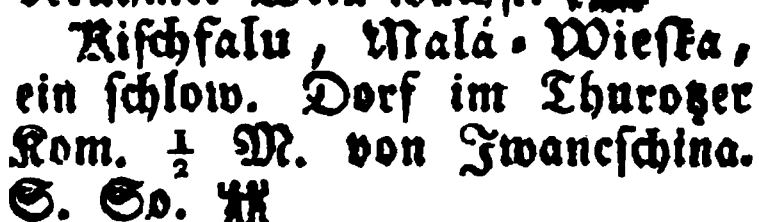 Kiſchfalu, Malá-Wieſka,
ein ſchlow. Dorf im Thurotzer
Kom. ½ M. von Jwancſchina.
S. So.